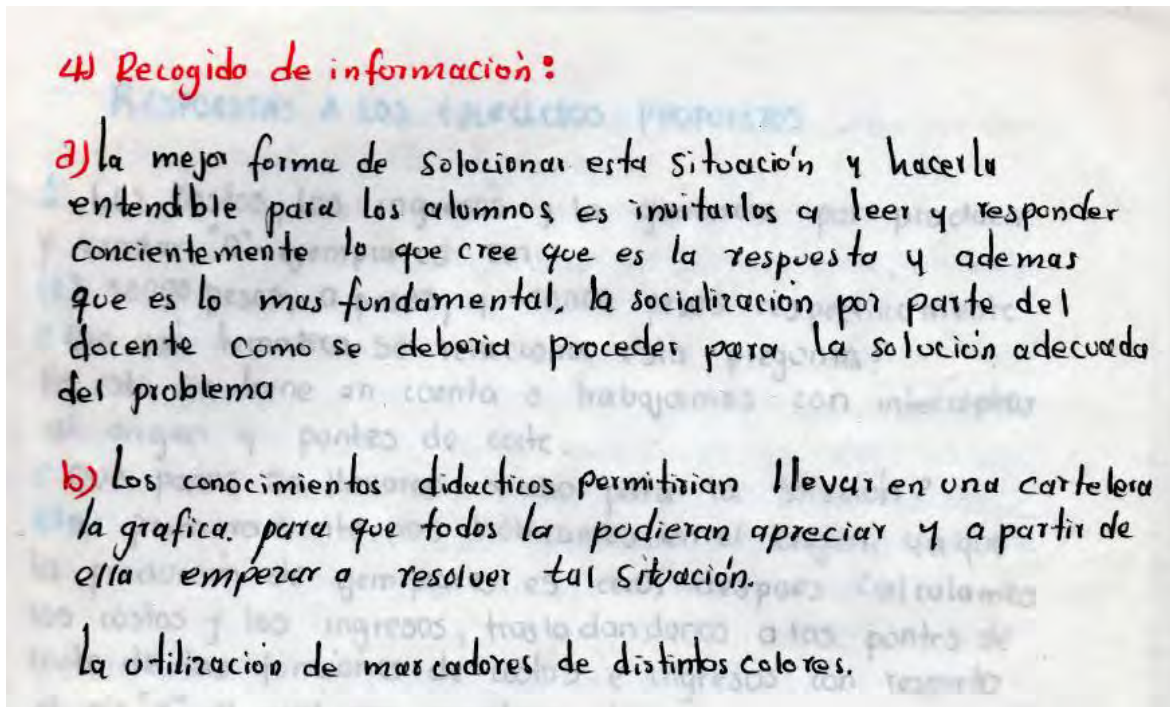 4) Recogido de información:
a) la mejor forma de solocionar esta situación y hacerla
entendible para los alumnos, es invitarlos a leer y responder
concientemente lo que cree que es la respuesta y ademas
que es lo mas fundamental, la socialización por parte del
docente como se deberia proceder para la solución adecuada
del problema
b) Los conocimientos didacticos permitirian llevar en una cartelera
la grafica. para que todos la pudieran apreciar y a partir de
ella empezar a resolver tal situación.
La utilización de marcadores de distintos colores.